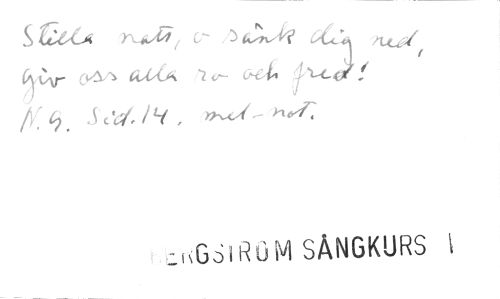 Stilla natt, o sänk dig ned,
giv oss alla ro och fred!
N.G. Sid. 14. mel-not.
BERGSTRÖM SÅNGKURS I